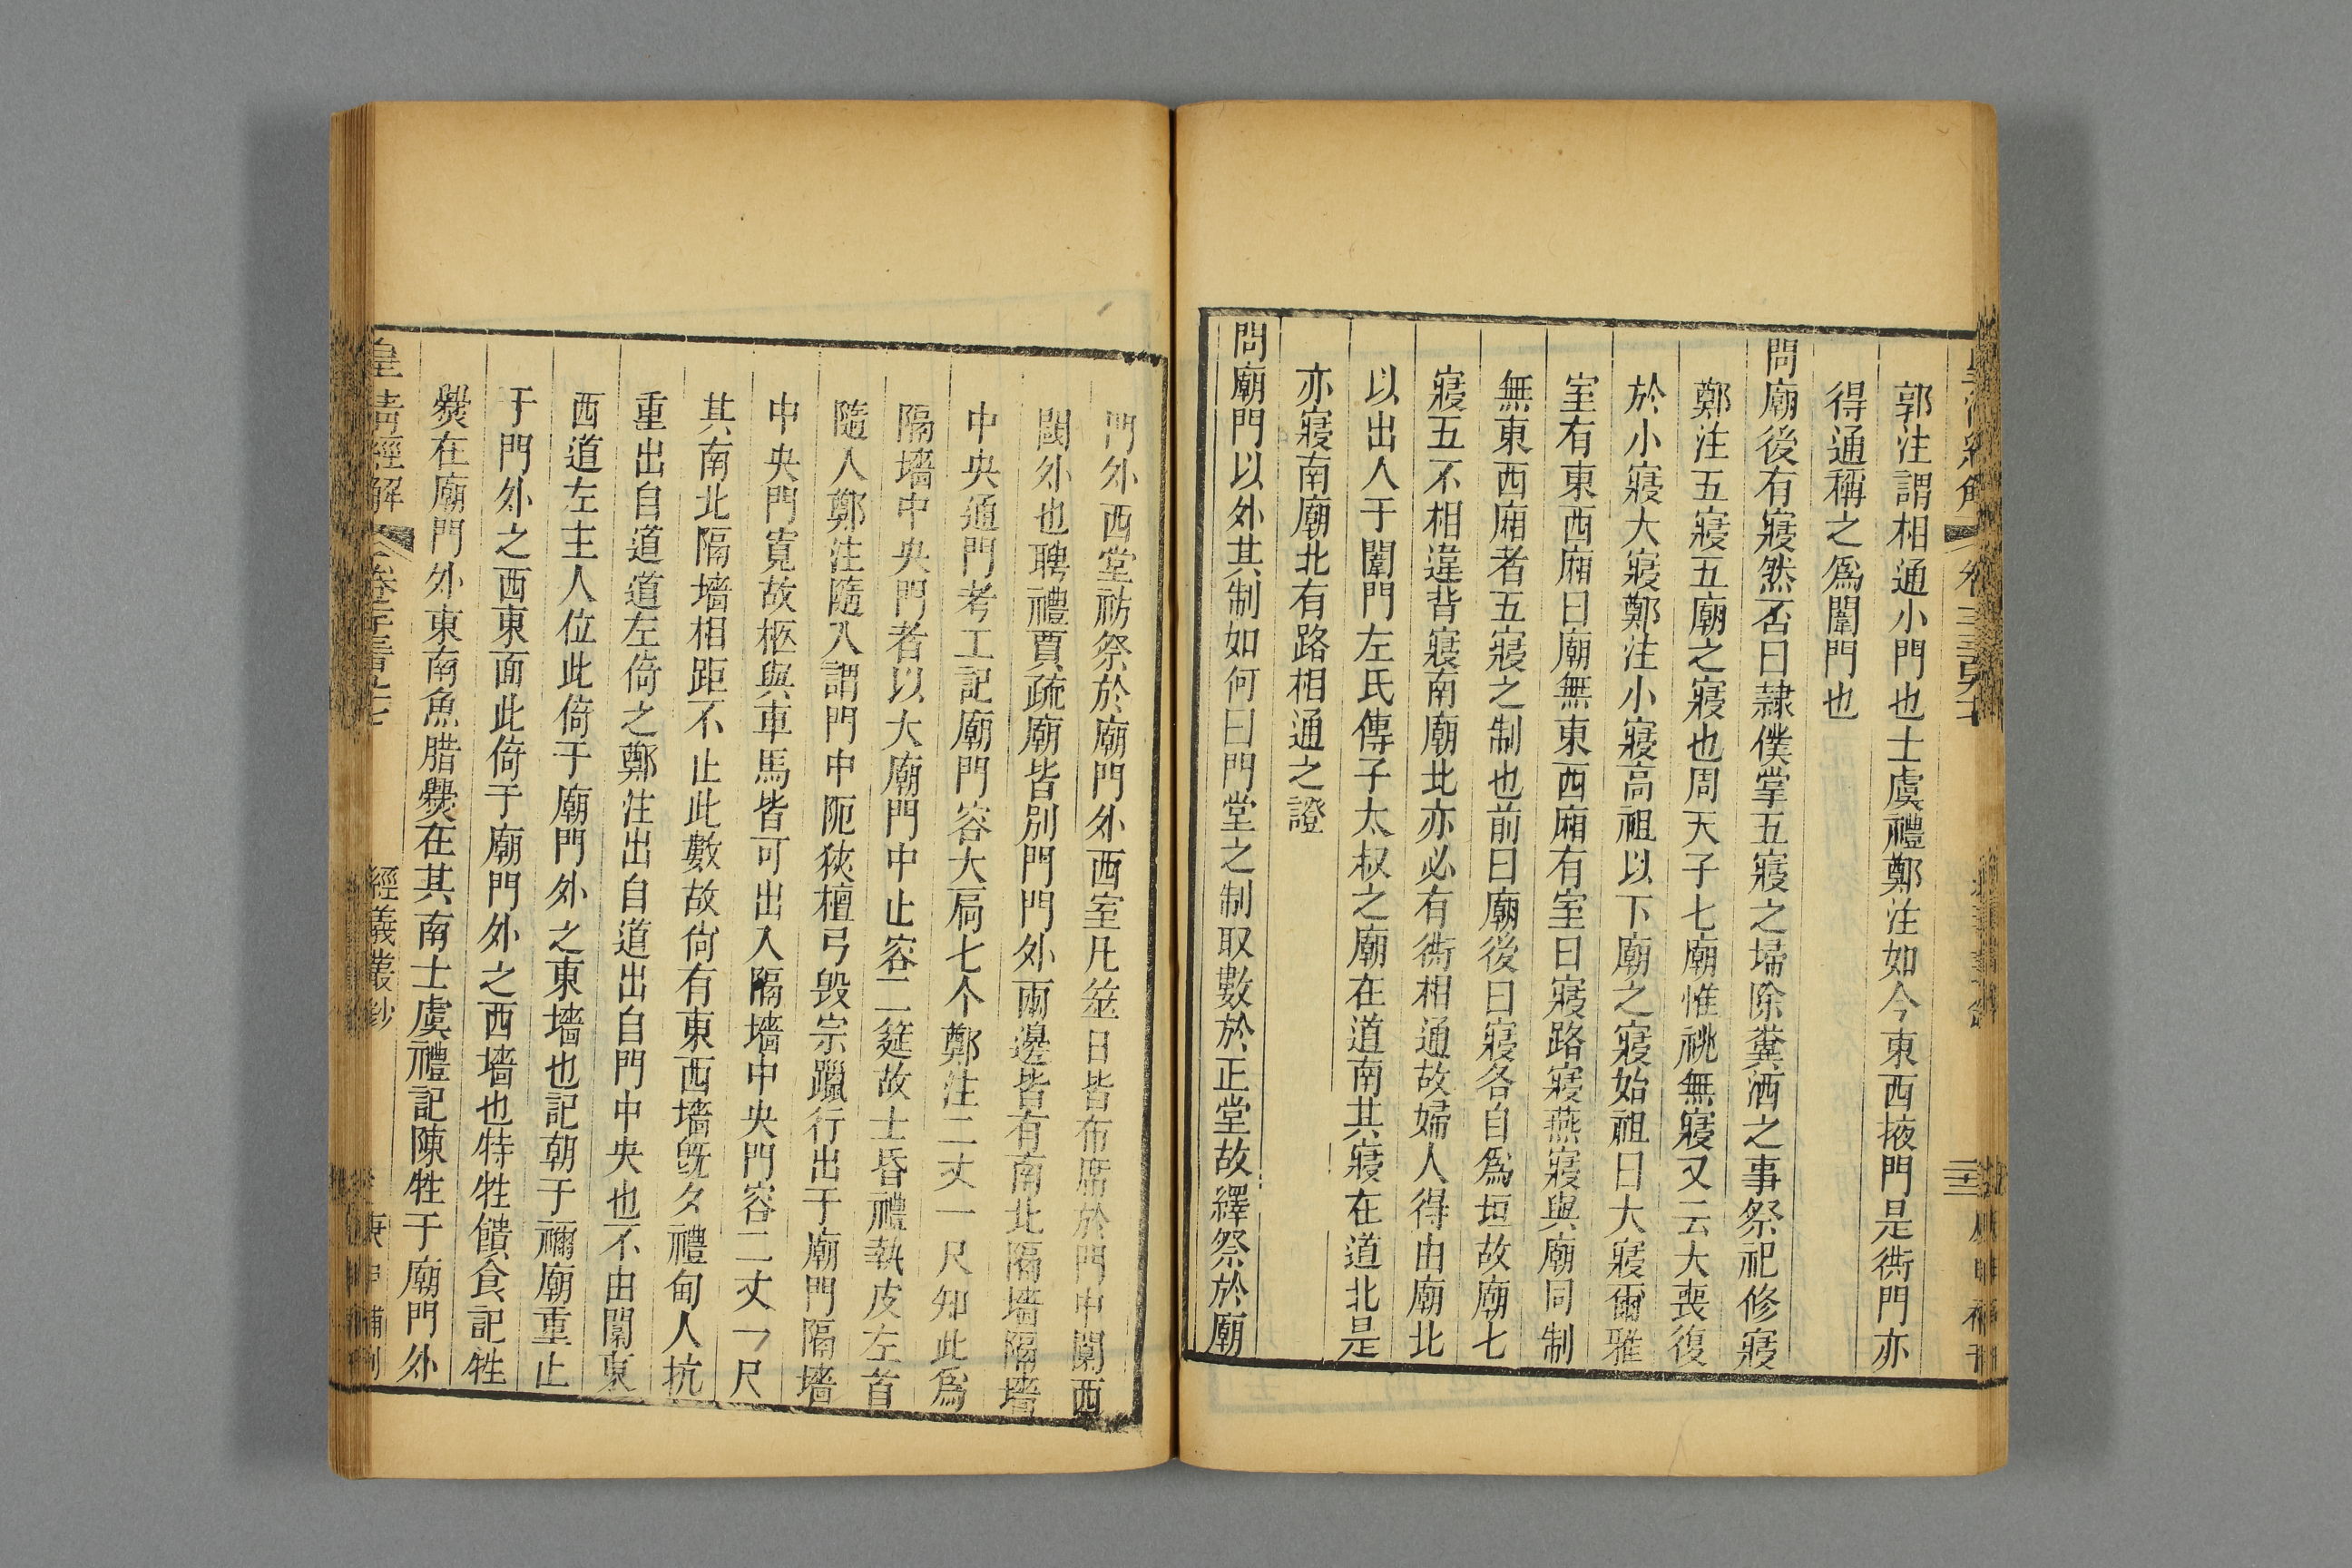 郭注謂相通小門也士虞禮鄭注如今東西掖門是衖門亦
得通稱之爲闈門也
問廟後有寢然否曰隸僕掌五寢之埽除糞洒之事祭祀修寢
鄭注五寢五廟之寢也周天子七廟惟祧無寢又云大喪復
於小寢大寢鄭注小寢高祖以下廟之寢始祖曰大寢爾雅
室有東西廂曰廟無東西廂有室曰寢路寢燕寢與廟同制
無東西廂者五寢之制也前曰廟後曰寢各自爲垣故廟七
寢五不相違背寢南廟北亦必有衖相通故婦人得由廟北
以出入于闈門左氏傳子太叔之廟在道南其寢在道北是
亦寢南廟北有路相通之證
問廟門以外其制如何曰門堂之制取數於正堂故繹祭於廟
門外西堂祊祭於廟門外西室凡筮日皆布席於門中闑西
閾外也聘禮賈疏廟皆別門門外兩邊皆有南北隔墻隔墻
中央通門考工記廟門容大扃七个鄭注二丈一尺知此爲
隔墻中央門者以大廟門中止容二筵故士昏禮執皮左首
隨入鄭注隨入謂門中阨狹檀弓毀宗躐行出于廟門隔墻
中央門寬故柩與車馬皆可出入隔墻中央門容二丈一尺
其南北隔墻相距不止此數故尙有東西墻旣夕禮甸人抗
重出自道道左倚之鄭注出自道出自門中央也不由闑東
西道左主人位此倚于廟門外之東墻也記朝于禰廟重止
于門外之西東面此倚于廟門外之西墻也特牲饋食記牲
爨在廟門外東南魚腊爨在其南士虞禮記陳牲于廟門外
皇清經解
經義叢鈔
庚申補刊